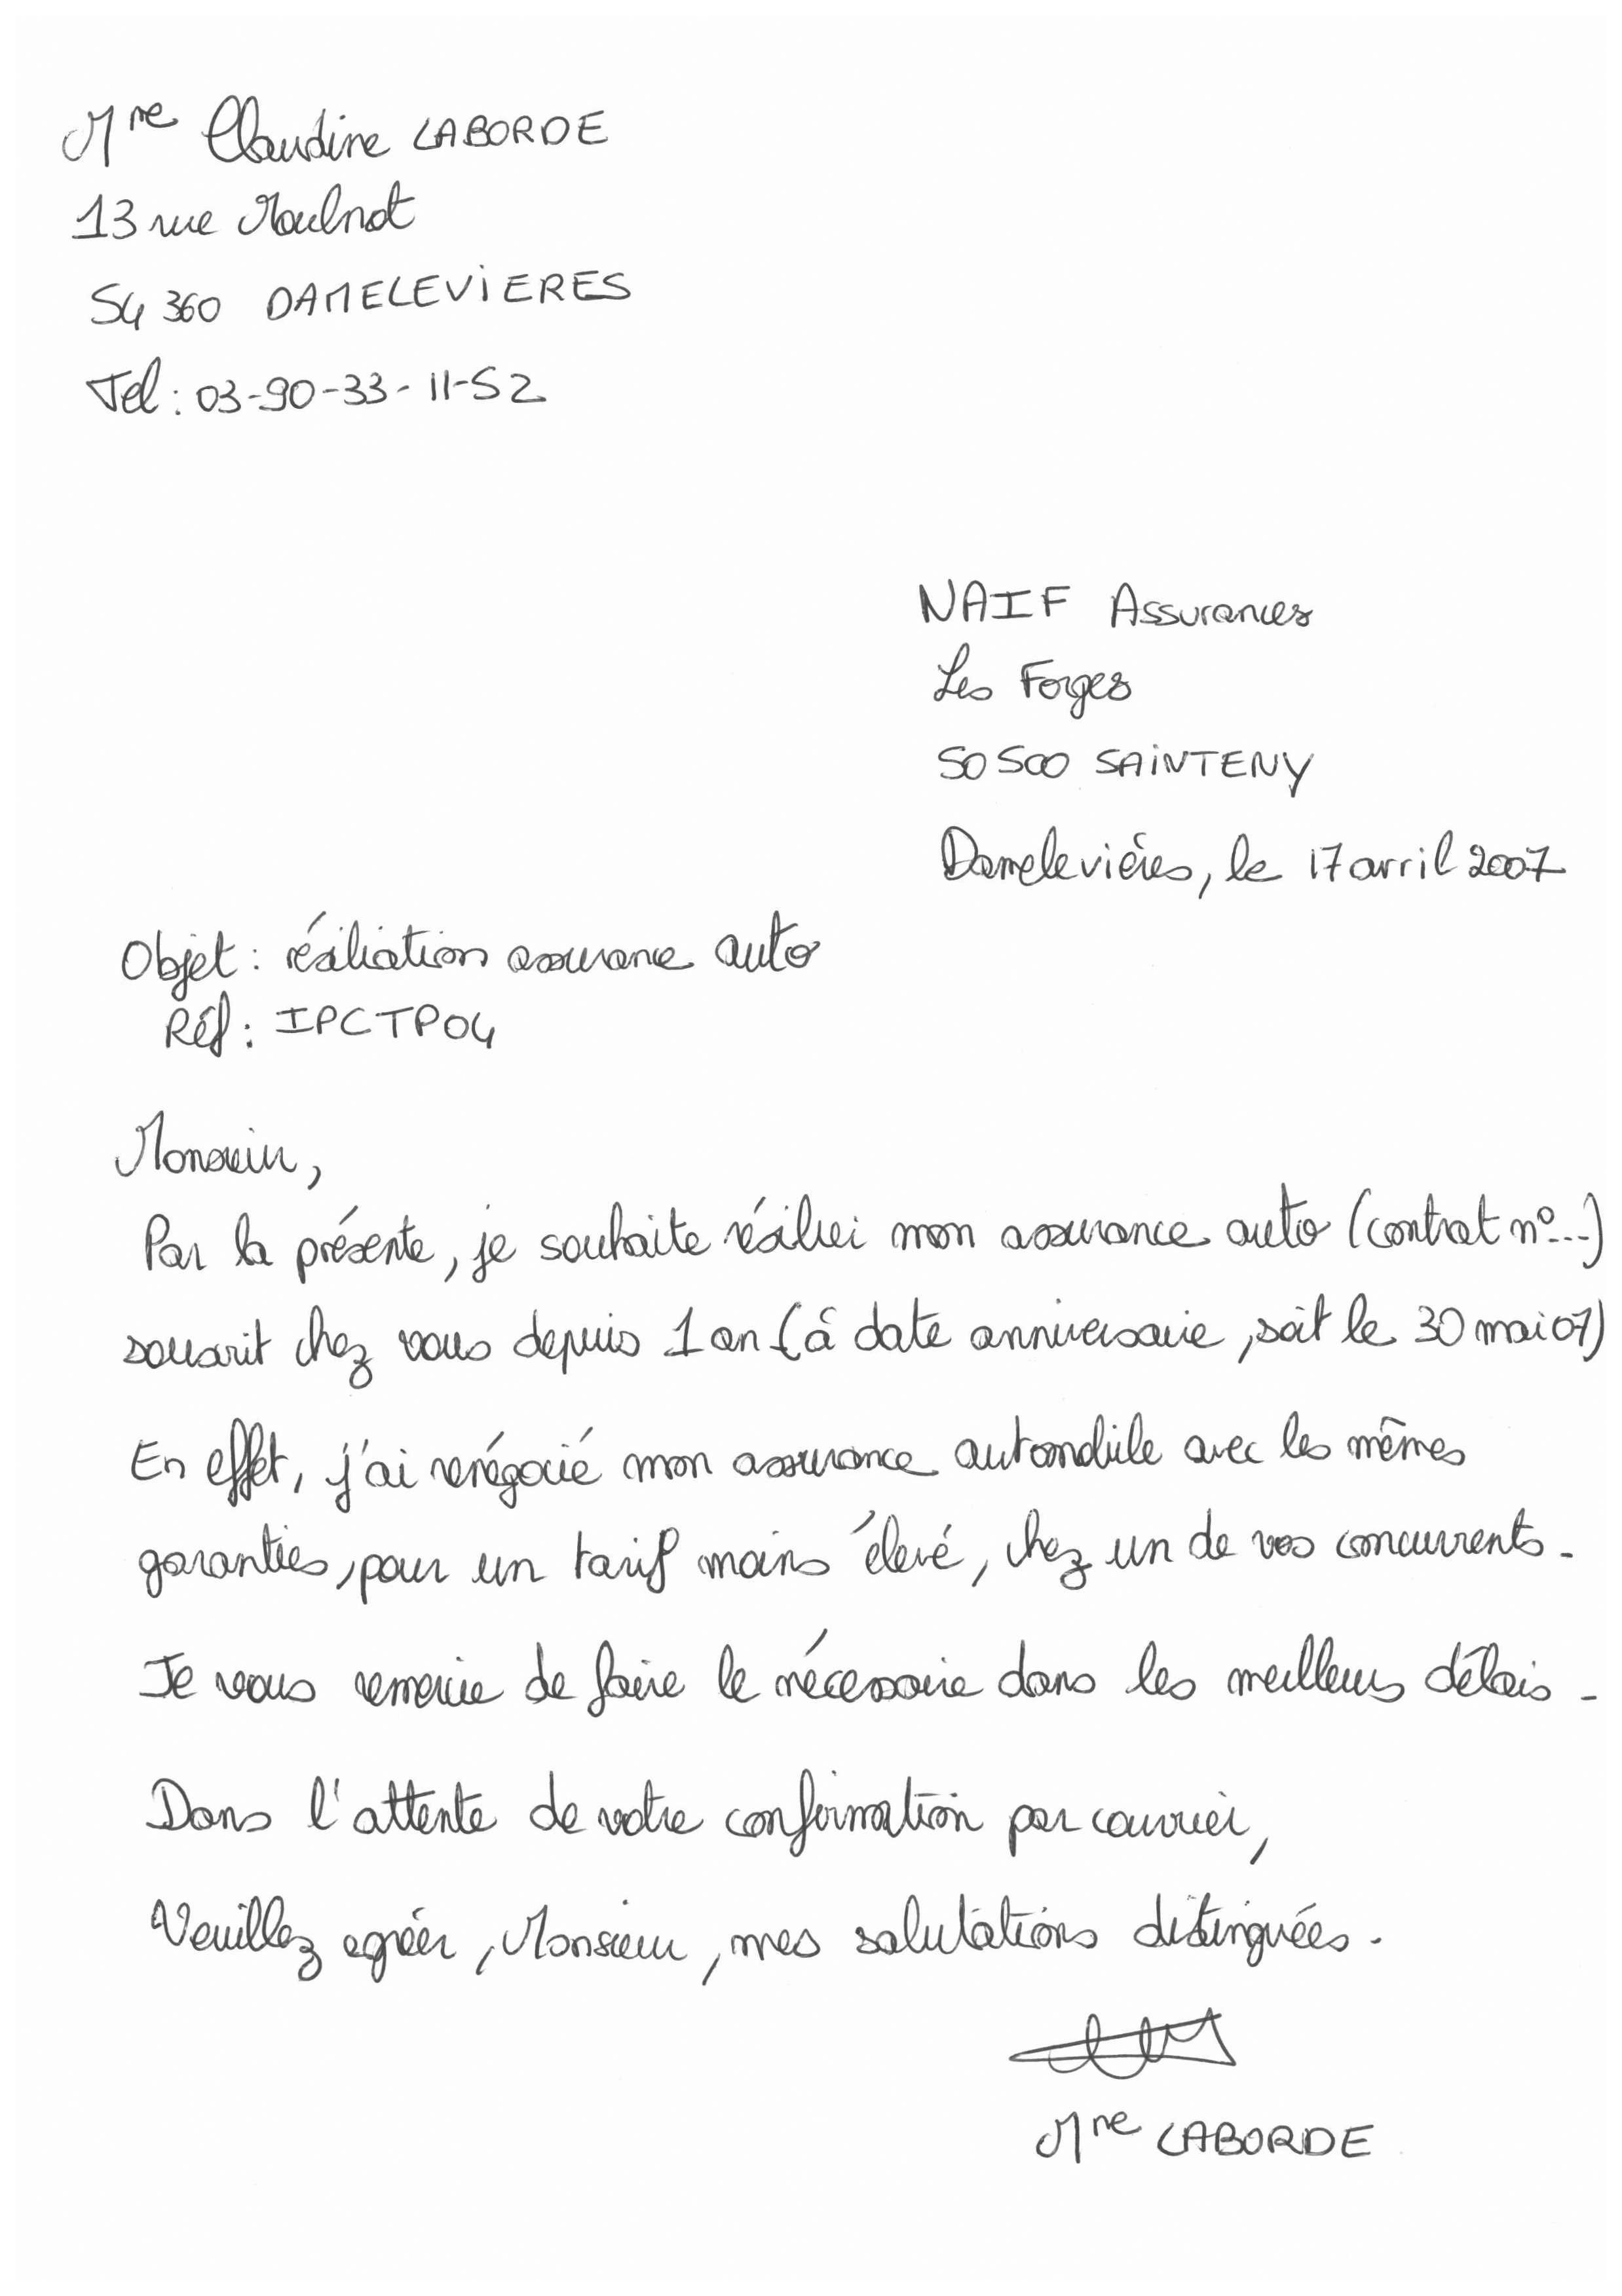 Mme Claudine LABORDE
13 rue Moulnot
54 360 DAMELEVIERES
Tel : 03-90-33-11-52
NAIF Assurances
Les Forges
50 500 SAINTENY
Damelevières, le 17 avril 2007
Objet : résiliation assurance auto
Réf : IPCTP04
Monsieur,
Par la présente, je souhaite résilier mon assurance auto (contrat n°...)
souscrit chez vous depuis 1 an (à date anniversaire, soit le 30 mai 07)
En effet, j'ai renégocié mon assurance automobile avec les mêmes
garanties, pour un tarif moins élevé, chez un de vos concurrents.
Je vous remercie de faire le nécessaire dans les meilleurs délais.
Dans l'attente de votre confirmation par courrier,
Veuillez agréer, Monsieur, mes salutations distinguées.
Mme LABORDE